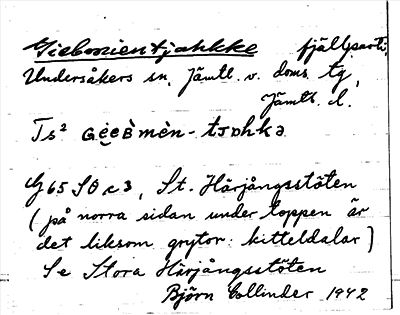 Giebmientjahkke fjällparti,
Undersåkers sn, Jämtl. v. doms. tg,
Jämtl. l.
Ts² Gẹ̀ẹʙ̀mèn- tᴊɒhkə
G 65 SO c 3, St. Härjångsstöten
(på norra sidan under toppen är
det liksom grytor: kitteldalar)
Se Stora Härjångsstöten
Björn Collinder 1942